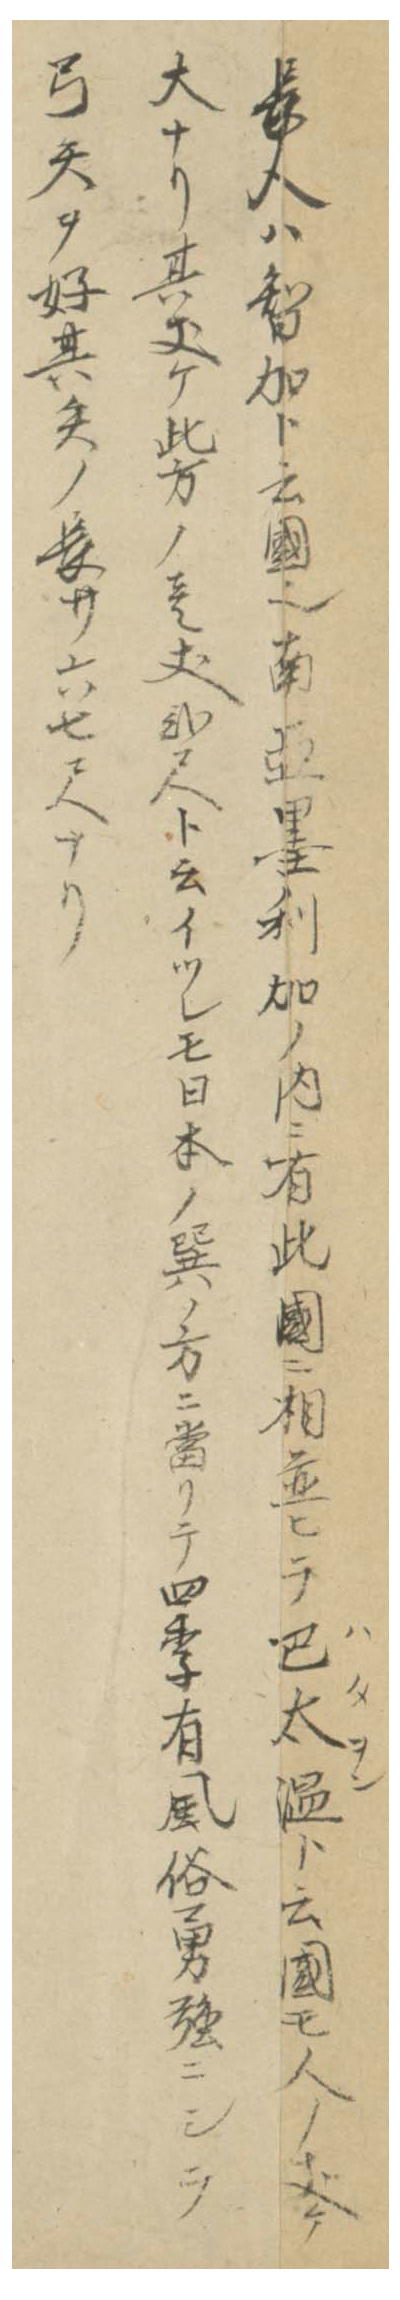 長人ハ智加ト云國也南亞墨利加ノ内ニ有此國ニ相並ヒテ巴太温ト云國モ人ノ丈ケ
ハタヲン
大ナリ其丈ケ此方ノ壱丈弐尺ト云イツレモ日本ノ巽ノ方ニ當リテ四季有風俗勇強ニシテ
弓矢ヲ好其矢ノ長サ六七尺ナリ